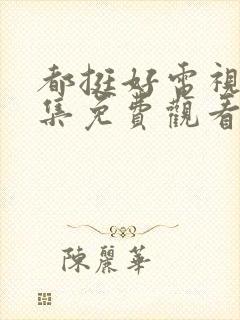 都挺好電視
集免費觀看
陳麗華